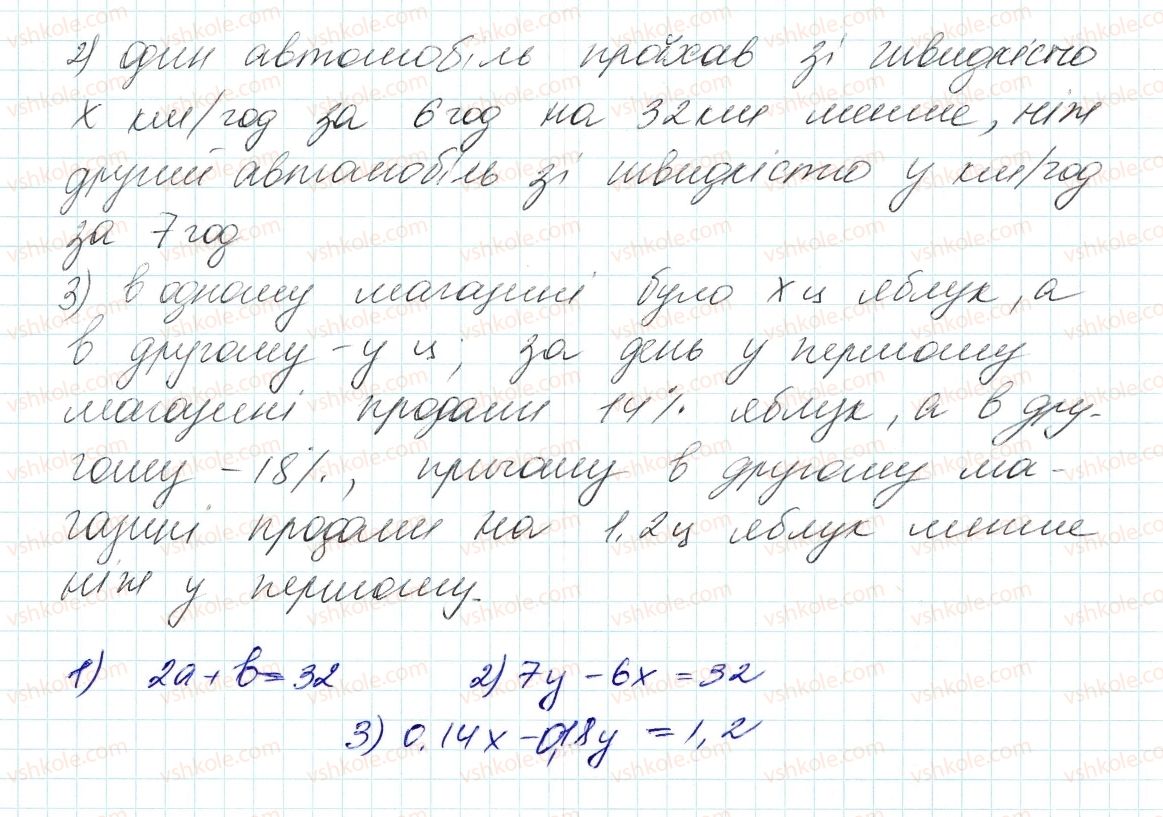 2) один автомобіль проїхав зі швидкістю
х км/год за 6 год на 32 км менше, ніж
другий автомобіль зі швидкістю у км/год
за 7 год
3) в одному магазині було х ц яблук, а
в другому - у ц; за день у першому
магазині продали 14% яблук, а в дру-
гому - 18%, причому в другому ма-
газині продали на 1,2 ц яблук менше
ніж у першому.
1) 2а + b = 32 2) 7у - 6х = 32
3) 0,14х - 0,18у = 1,2
vshkole.com